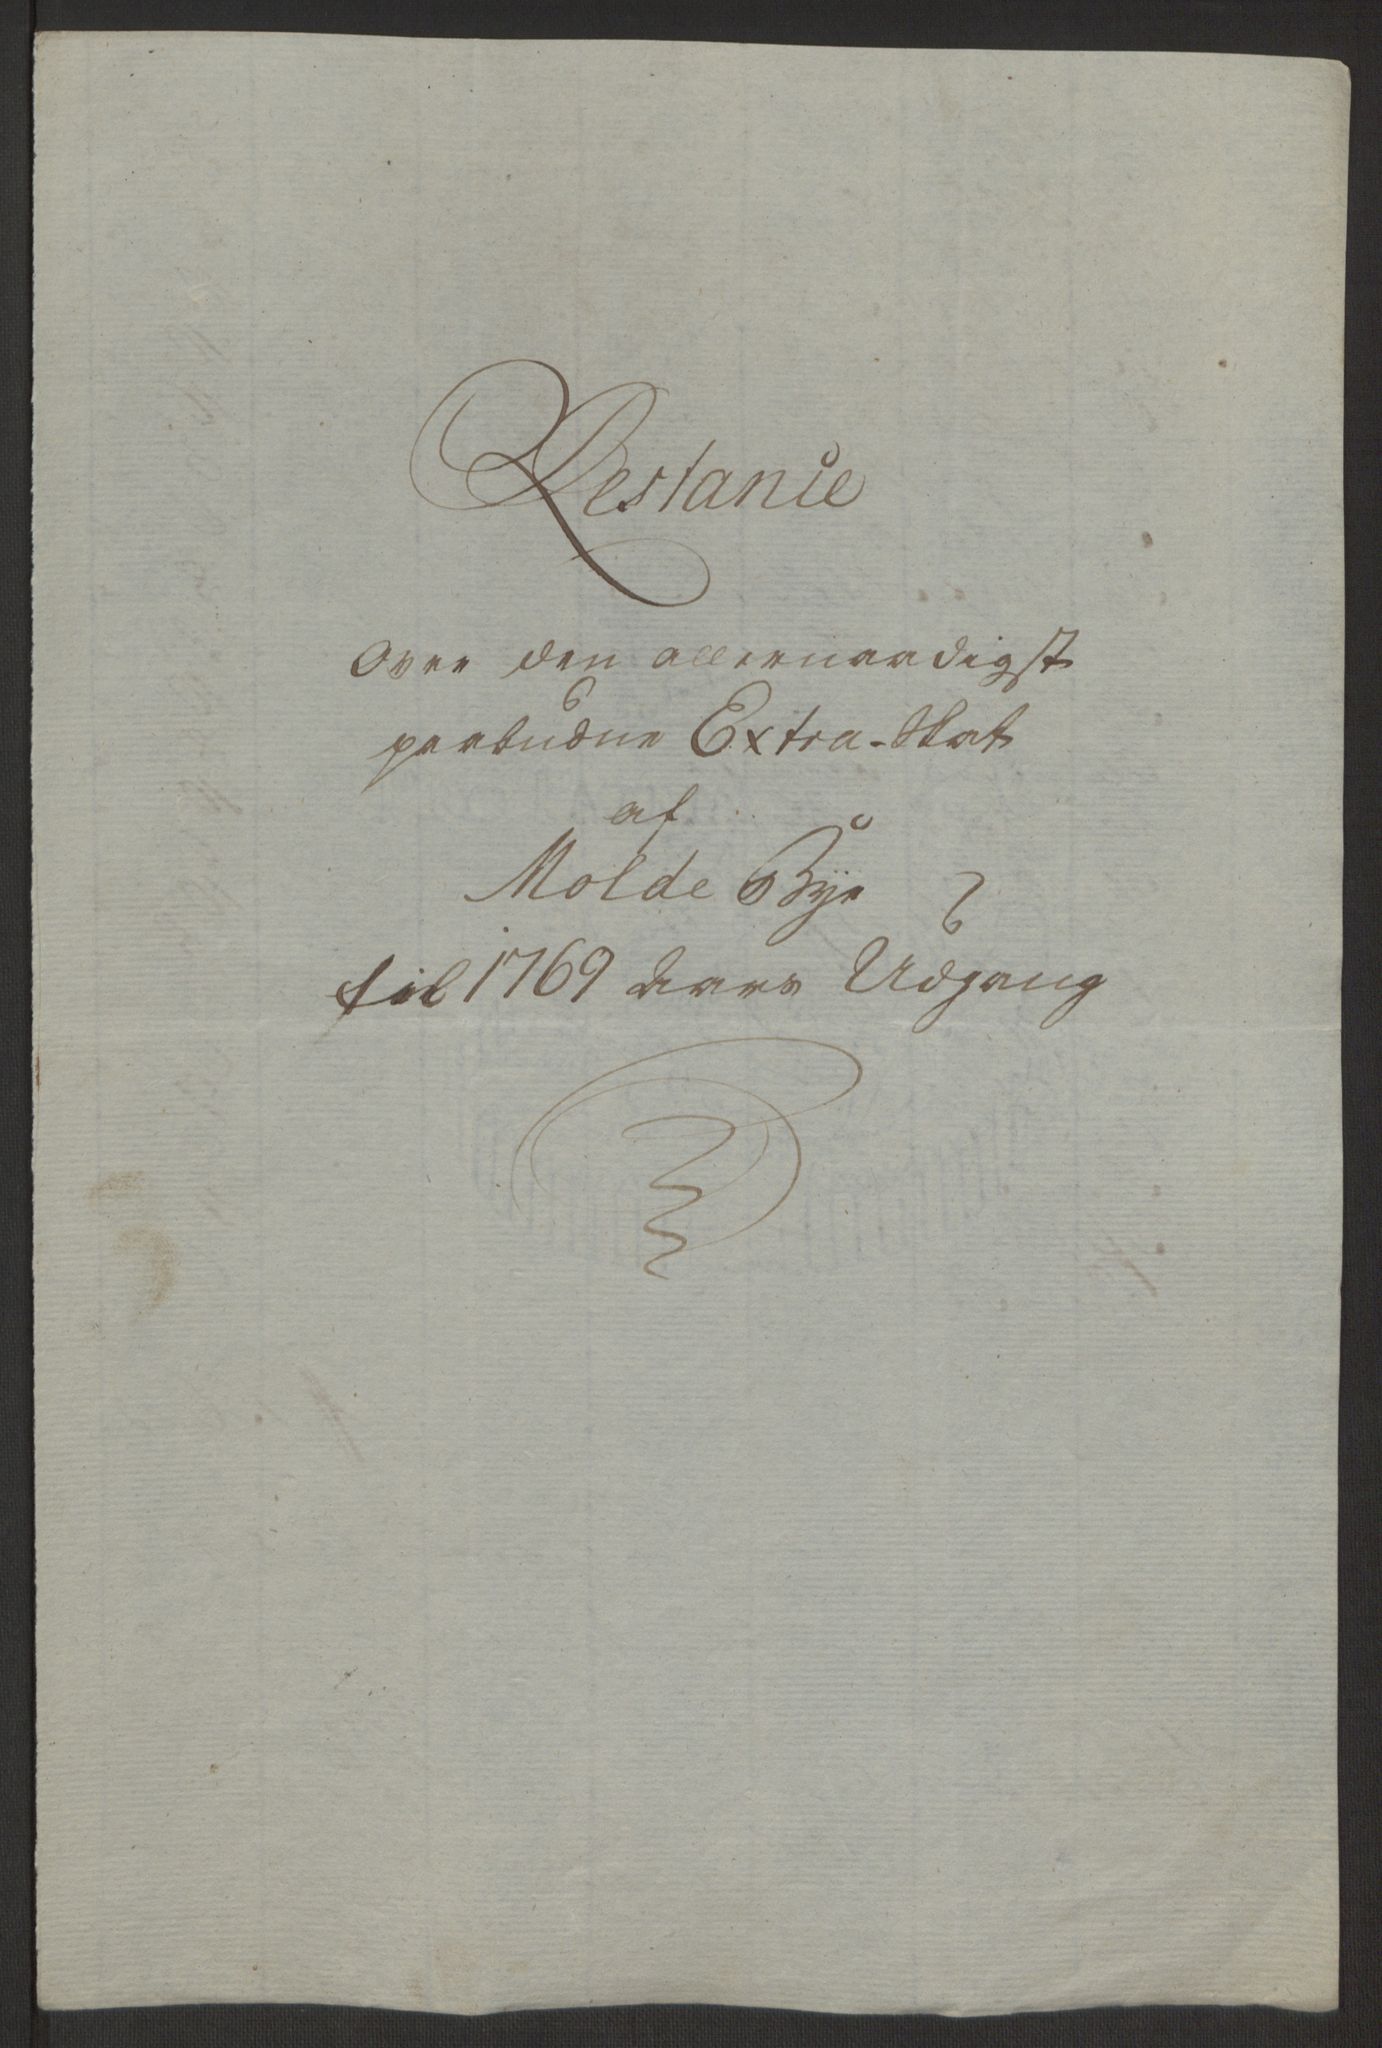 Restance
Over den allernaadigst
paabudne Extra-Skat
af
Molde Bye
til 1769 Aars Udgang